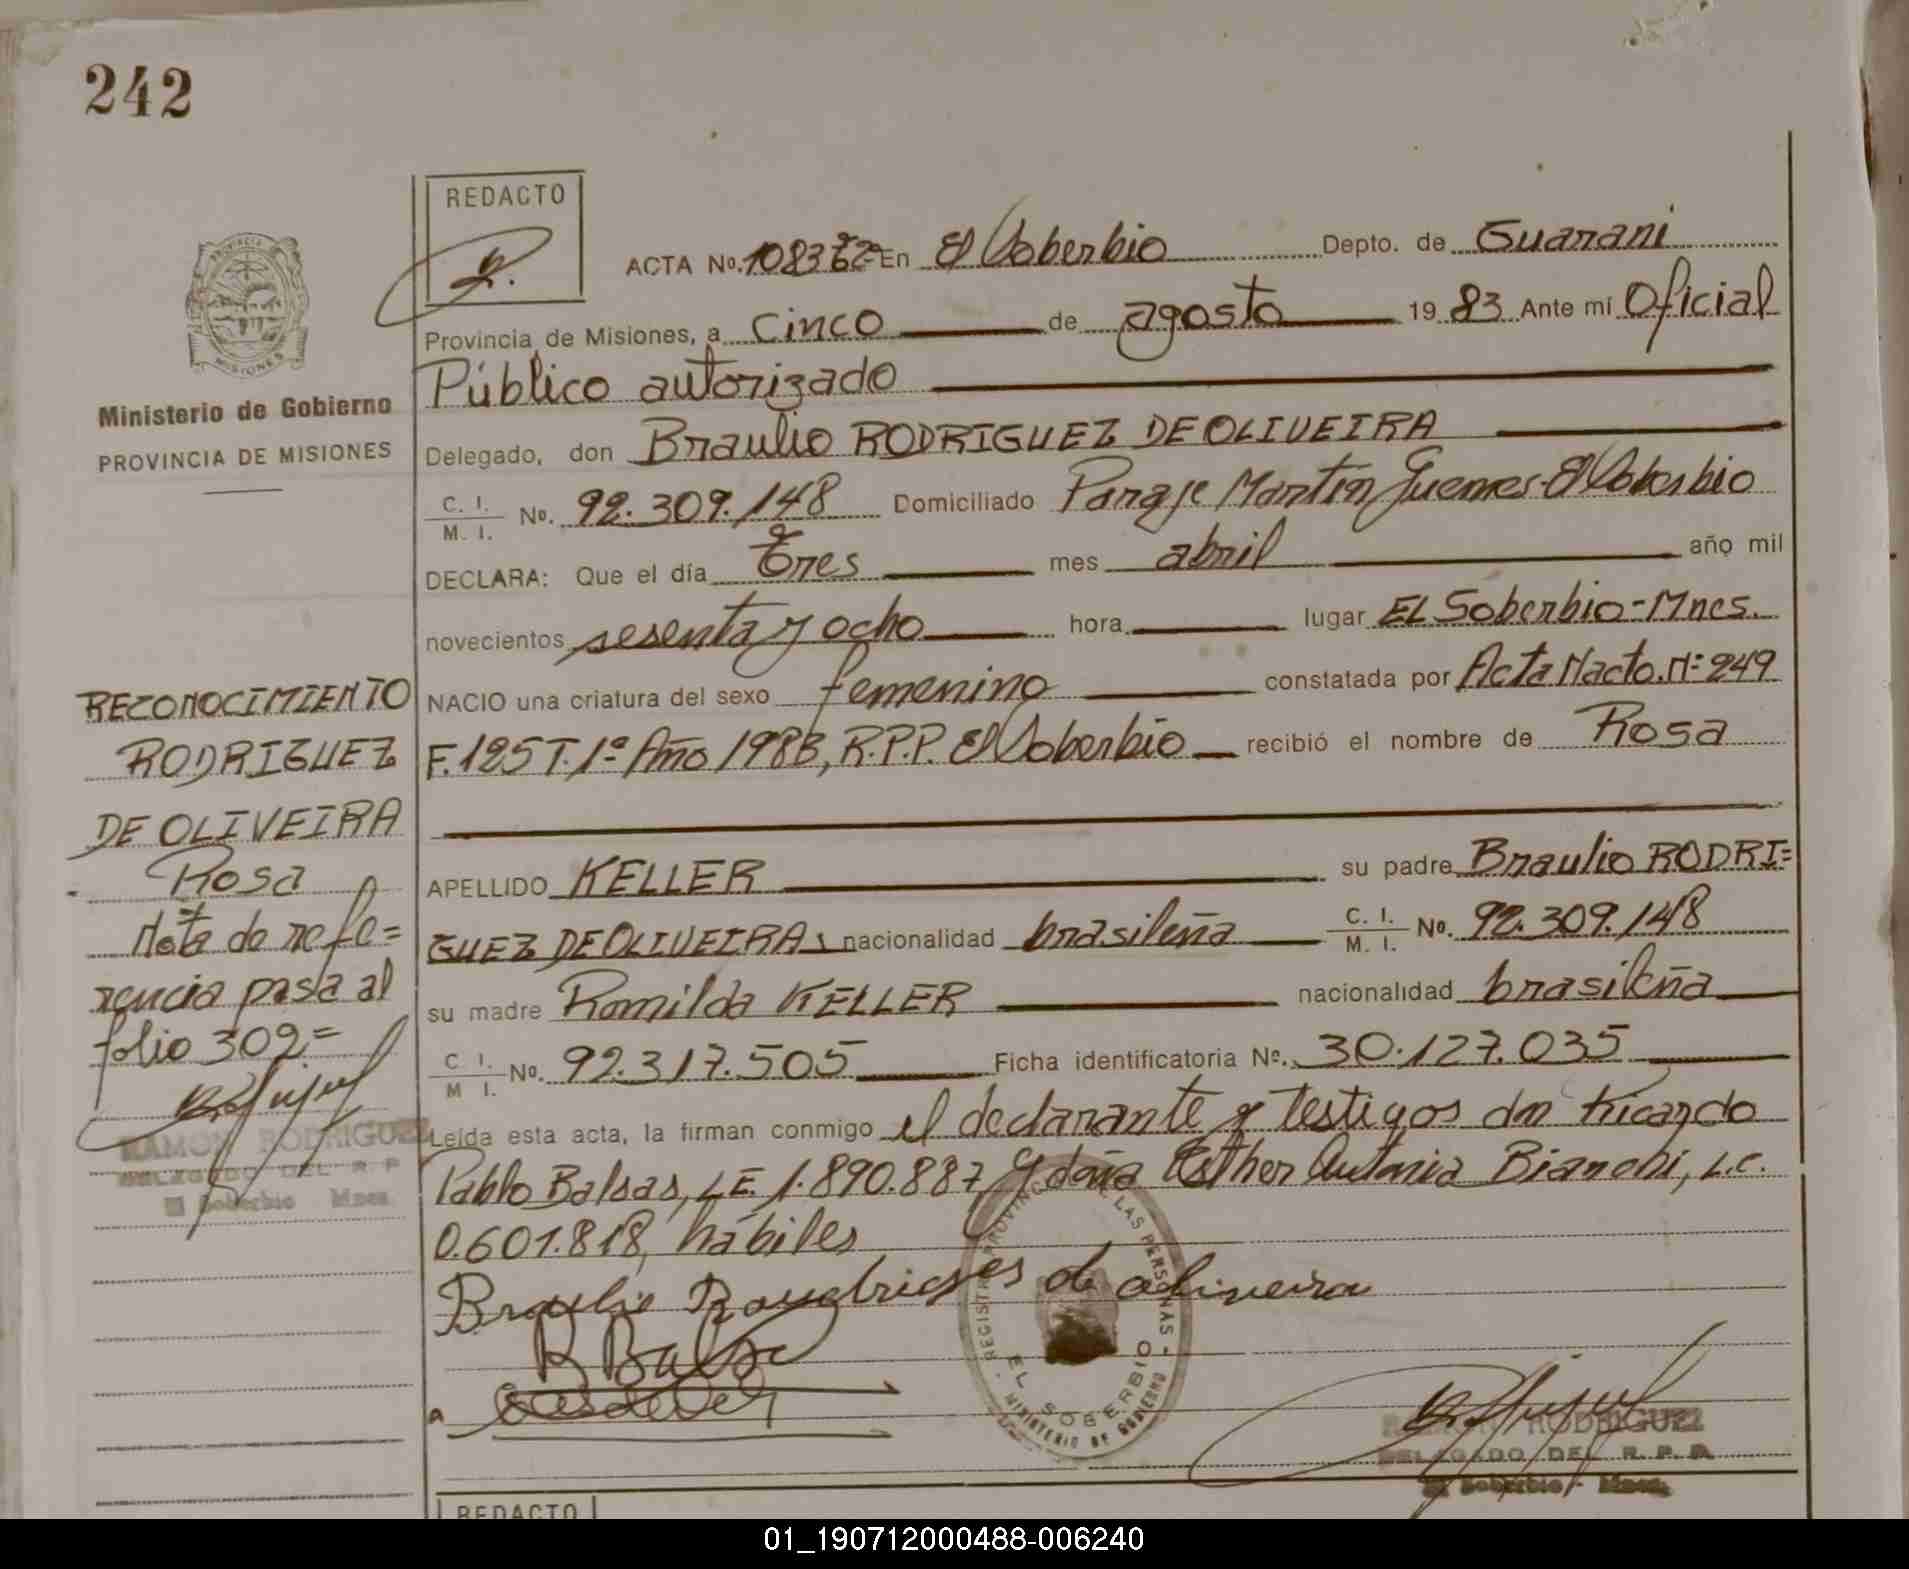 242
REDACTO
ACTA No. En El Soberbio Depto. de Guarani
Provincia de Misiones, a cinco de agosto 19 83 Ante mí Oficial
Público autorizado
Ministerio de Gobierno
PROVINCIA DE MISIONES
Delegado, don Braulio RODRIGUEZ DE OLIVEIRA
C. I. M. I. No. 92.309.148 Domiciliado Paraje Martín Guemes-El Soberbio
DECLARA: Que el día Tres mes abril año mil
novecientos sesenta y ocho hora lugar EL Soberbio-Mnes.
NACIO una criatura del sexo femenino constatada por Acta Nacto. Nº 249
F.125 T.1º Año 1983, R.P.P. El Soberbio recibió el nombre de Rosa
APELLIDO KELLER su padre Braulio RODRI=
GUEZ DE OLIVEIRA, nacionalidad brasileña C. I. M. I. No. 92.309.148
su madre Romilda KELLER nacionalidad brasileña
C. I. M. I. No. 92.317.505 Ficha identificatoria Nº. 30.127.035
Leída esta acta, la firman conmigo el declarante y testigos don Ricardo
Pablo Balsas, L.E. 1.890.887 y doña Esther Antonia Bianchi, L.C.
0.601.818, hábiles
Braulio Rodrigues de oliveira
R Balsa
RECONOCIMIENTO
RODRIGUEZ
DE OLIVEIRA
Rosa
Nota de refe=
rencia pasa al
folio 302=
RAMON RODRIGUEZ
DELEGADO DEL R. P.
El Soberbio Mnes.
REGISTRO PROVINCIAL DE LAS PERSONAS
EL SOBERBIO
MINISTERIO DE GOBIERNO
RAMON RODRIGUEZ
DELEGADO DEL R. P. P.
El Soberbio - Mnes.
REDACTO
01_190712000488-006240